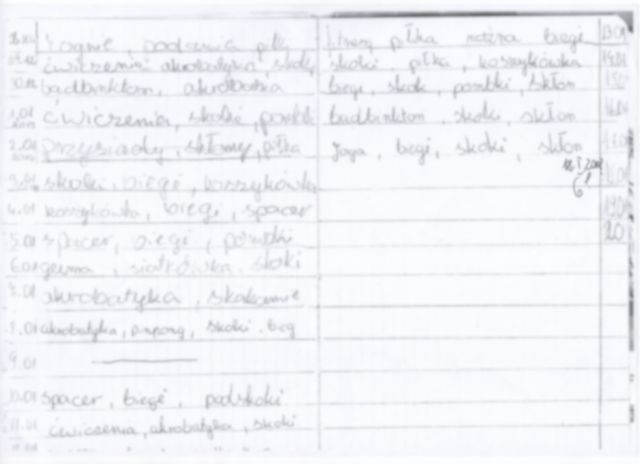 podania piłki
ćwiczenia akrobatyka, skoki
badbinkton, akrobatyka
1.01 ćwiczenia, skoki, pompki
2.01 przysiady, skłony, piłka
3.01 skoki, biegi, koszykówka
4.01 koszykówka, biegi, spacer
5.01 spacer, biegi, pompki
6.01 guma, siatkówka, skoki
7.01 akrobatyka, skakanie
akrobatyka, pingpong, skoki, bieg
9.01
10.01 spacer, biegi, podskoki
11.01 ćwiczenia, akrobatyka, skoki
piłka nożna biegi 13.01
skoki, piłka, koszykówka 14.01
biegi, skok, pompki skłon
badbinkton, skoki, skłon 16.01
joga, biegi, skoki, skłon
20